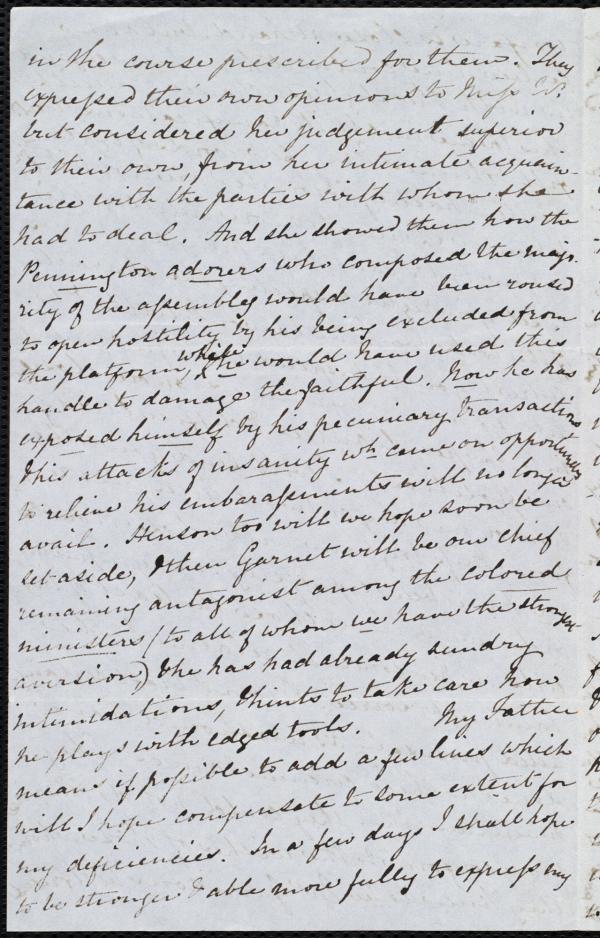 in the course prescribed for them. They
expressed their own opinions to Miss W.
but considered her judgement superior
to their own, from her intimate acquain-
tance with the parties with whom she
had to deal. And she showed them how the
Pennington adorers who composed the majo-
rity of the assembly would have been roused
to open hostility by his being excluded from
the platform, while he would have used this
handle to damage the faithful. Now he has
exposed himself by his pecuniary transactions
& his attacks of insanity wh. came on opportunely
to relieve his embarassments will no longer
avail. Henson too will we hope soon be
set aside, & then Garnet will be our chief
remaining antagonist among the colored
ministers (to all of whom we have the strongest
aversion,) & he has had already sundry
intimidations, & hints to take care how
he plays with edged tools. My Father
means if possible to add a few lines which
will I hope compensate to some extent for
my deficiencies. In a few days I shall hope
to be stronger & able more fully to express my